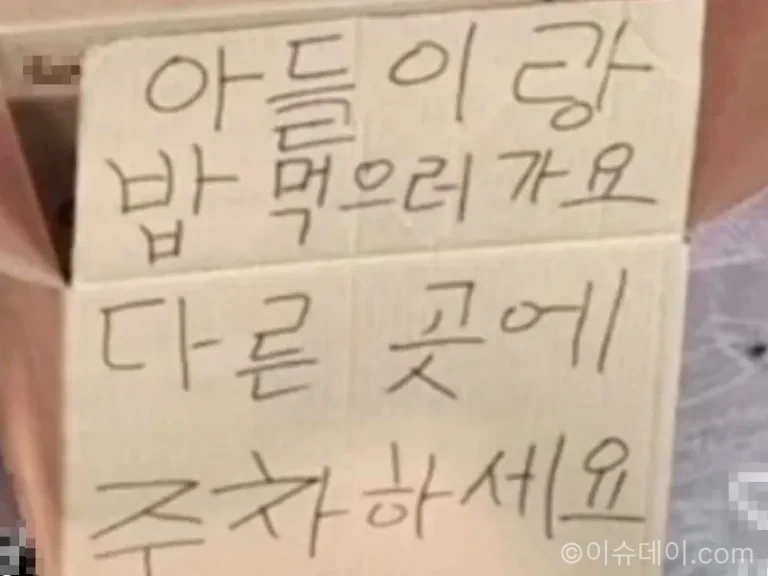 아들이랑
밥 먹으러가요
다른 곳에
주차하세요
©이슈데이.com